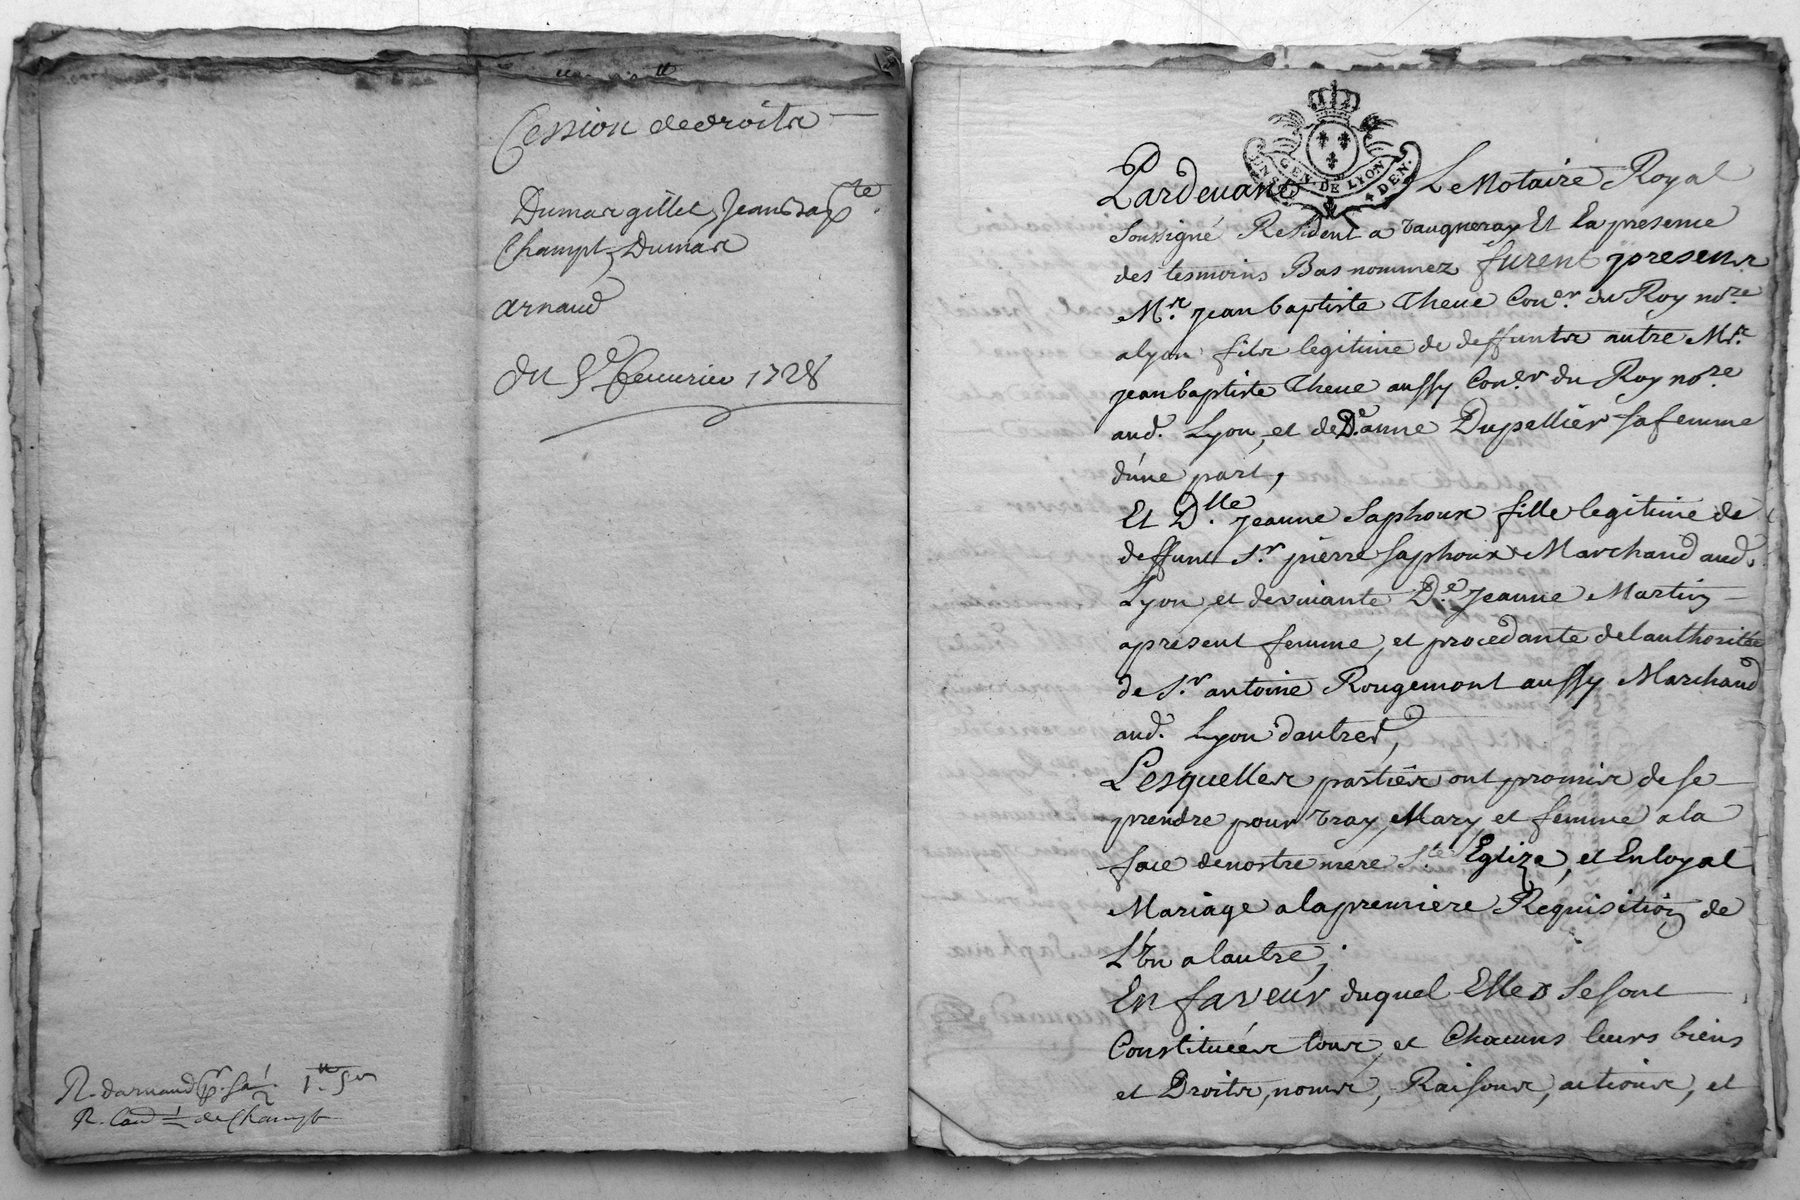 Cession de droits
Dumargillet, Jean Bap.te
Champt, Dumas
arnaud
du 5e feuurier 1728
R. darnaud pr. sa
R. de Champt
GEN. DE LYON
DEN.
Pardevant Le Notaire Royal
Soussigné Resident a vaugneray Et En presence
des tesmoins Bas nommez furent presens
Mr. jean baptiste Theve Coner. du Roy nore
a lyon fils legitime de deffunts autre Mr.
jean baptiste Theve aussy Coner du Roy nore
aud. Lyon, et de De. anne Dupellier sa femme
d'une part,
Et Dlle. jeanne Saphoux fille legitime de
deffunt Sr. pierre Saphoux Marchand aud.
Lyon, et de vivante De. Jeanne Martin
apresent femme, et procedante de lauthorité
de Sr. antoine Rougemont aussy Marchand
aud. Lyon d'autres,
Lesquelles parties ont promis de se
prendre pour vray, Mary, et femme a la
face de nostre mere Ste. Eglize, et En loyal
Mariage a la premiere Requisition de
L'vn a lautre;
En faveur duquel Elles se sont
Constituées tous, et Chacuns leurs biens
et Droits, noms, Raisons, actions, et